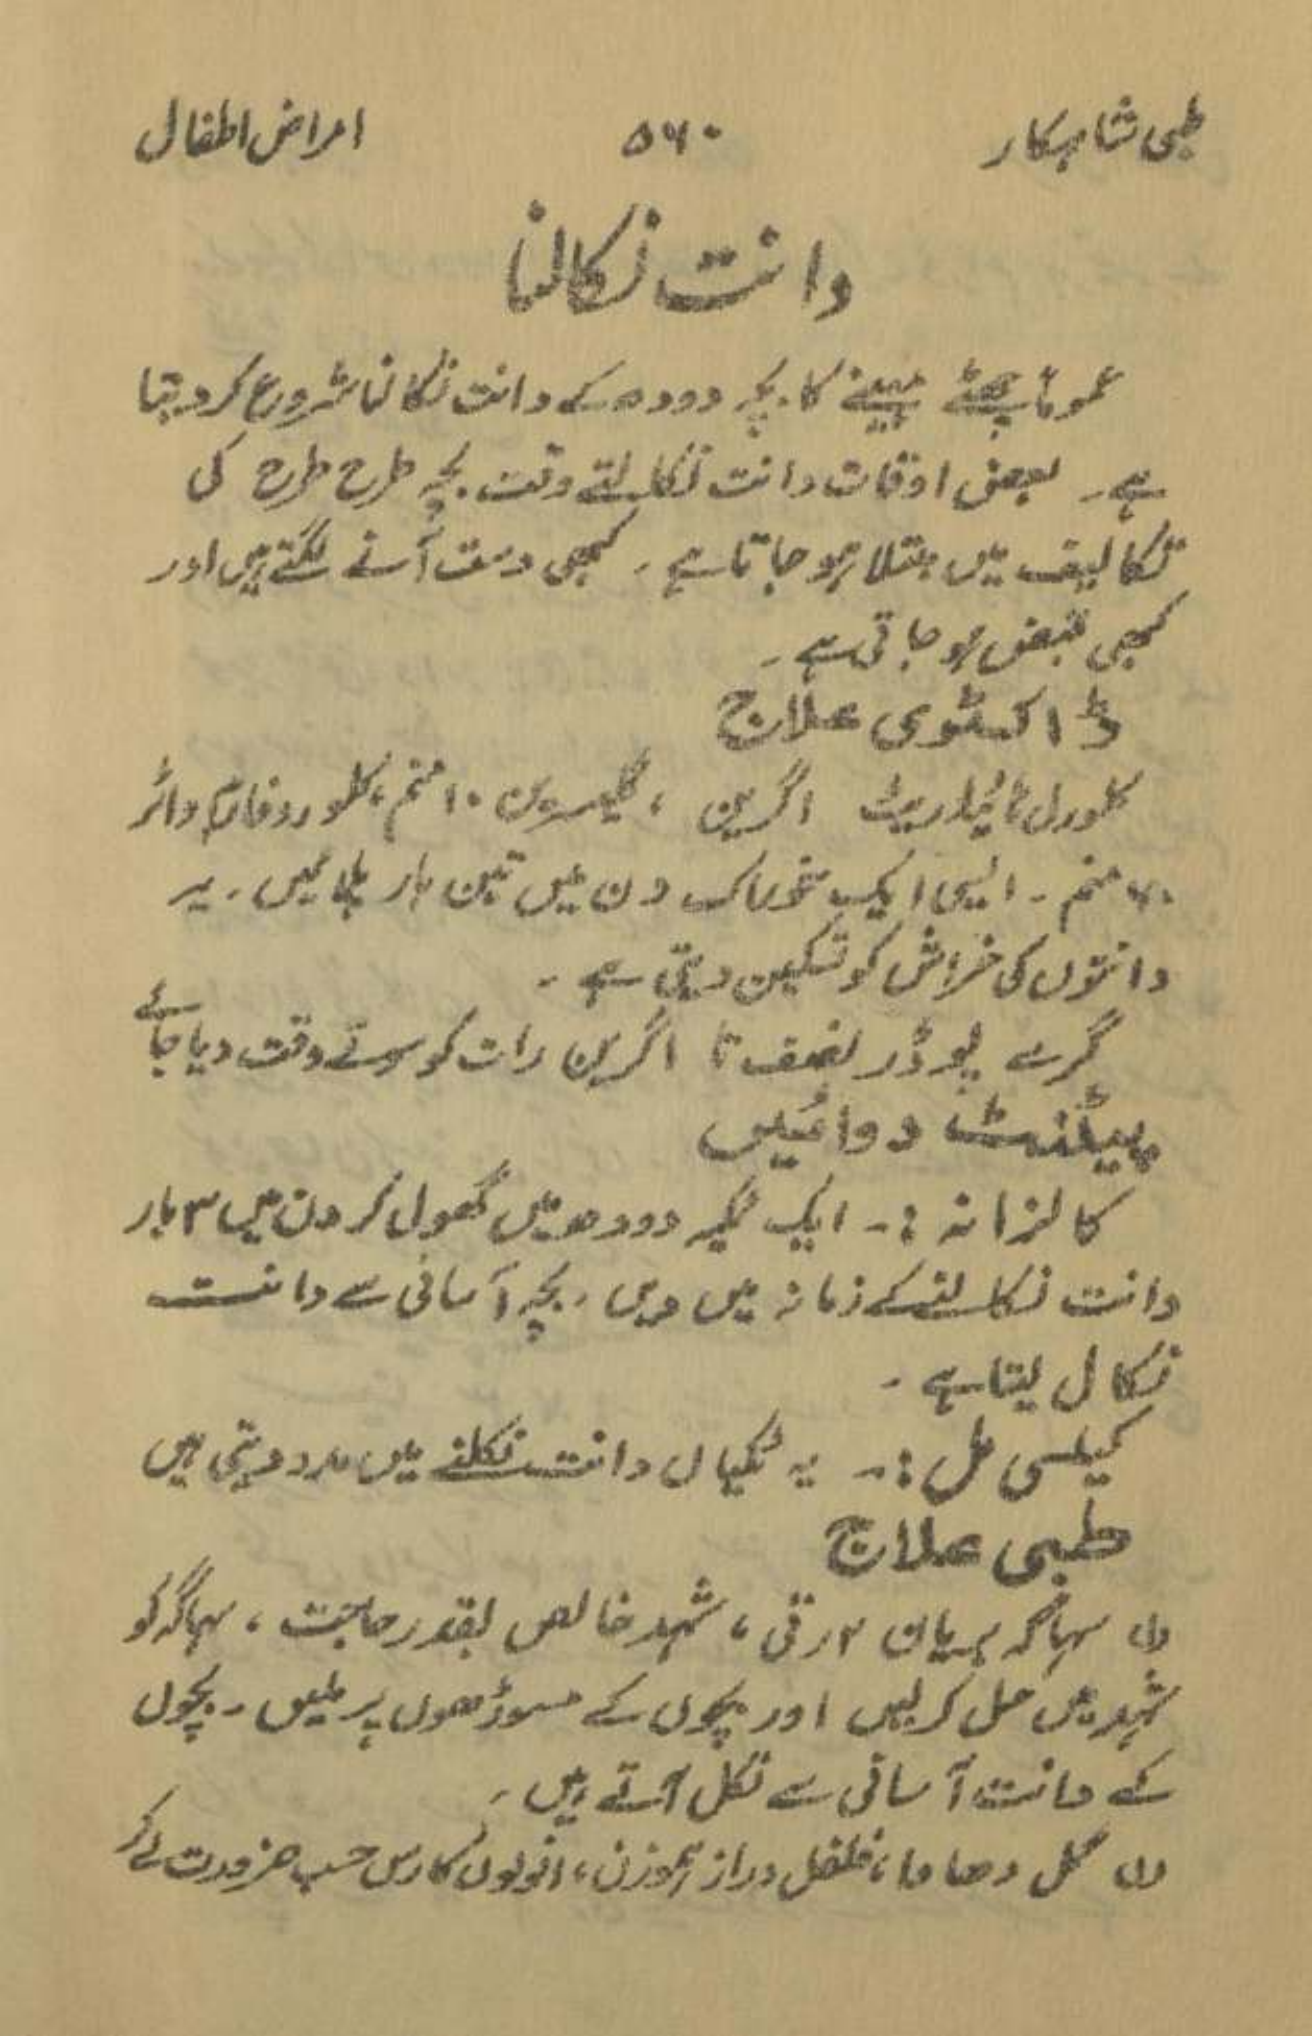 طبی شاہکار ۵۶۰ امراض اطفال
دانت نکالنا
عموماً چھٹے مہینے کا بچہ دودھ کے دانت نکالنا شروع کر دیتا
ہے۔ بعض اوقات دانت نکالتے وقت بچہ طرح طرح کی
تکالیف میں مبتلا ہو جاتا ہے۔ کبھی دست آنے لگتے ہیں اور
کبھی قبض ہو جاتی ہے۔
ڈاکٹری علاج
کلورل ہائیڈریٹ ۱ گرین ، گلیسرین ۱۰ منم ، کلوروفارم واٹر
۶۰ منم ۔ ایسی ایک خوراک دن میں تین بار پلائیں ۔ یہ
دانتوں کی خراش کو تسکین دیتی ہے ۔
گرے پوڈر نصف تا ۱ گرین رات کو سوتے وقت دیا جائے
پیٹنٹ دوائیں
کالزانہ :۔ ایک ٹکیہ دودھ میں گھول کر دن میں ۳ بار
دانت نکالنے کے زمانہ میں دیں ۔ بچہ آسانی سے دانت
نکال لیتا ہے ۔
کیلسی مل :۔ یہ ٹکیاں دانت نکلنے میں مدد دیتی ہیں
طبی علاج
(۱) سہاگہ بریان ۲ رتی ، شہد خالص بقدر حاجت ، سہاگہ کو
شہد میں حل کر لیں اور بچوں کے مسوڑھوں پر ملیں ۔ بچوں
کے دانت آسانی سے نکل آتے ہیں ۔
گل دھاوا ، فلفل دراز ہموزن ، آنولوں کا رس حسب ضرورت لے کر